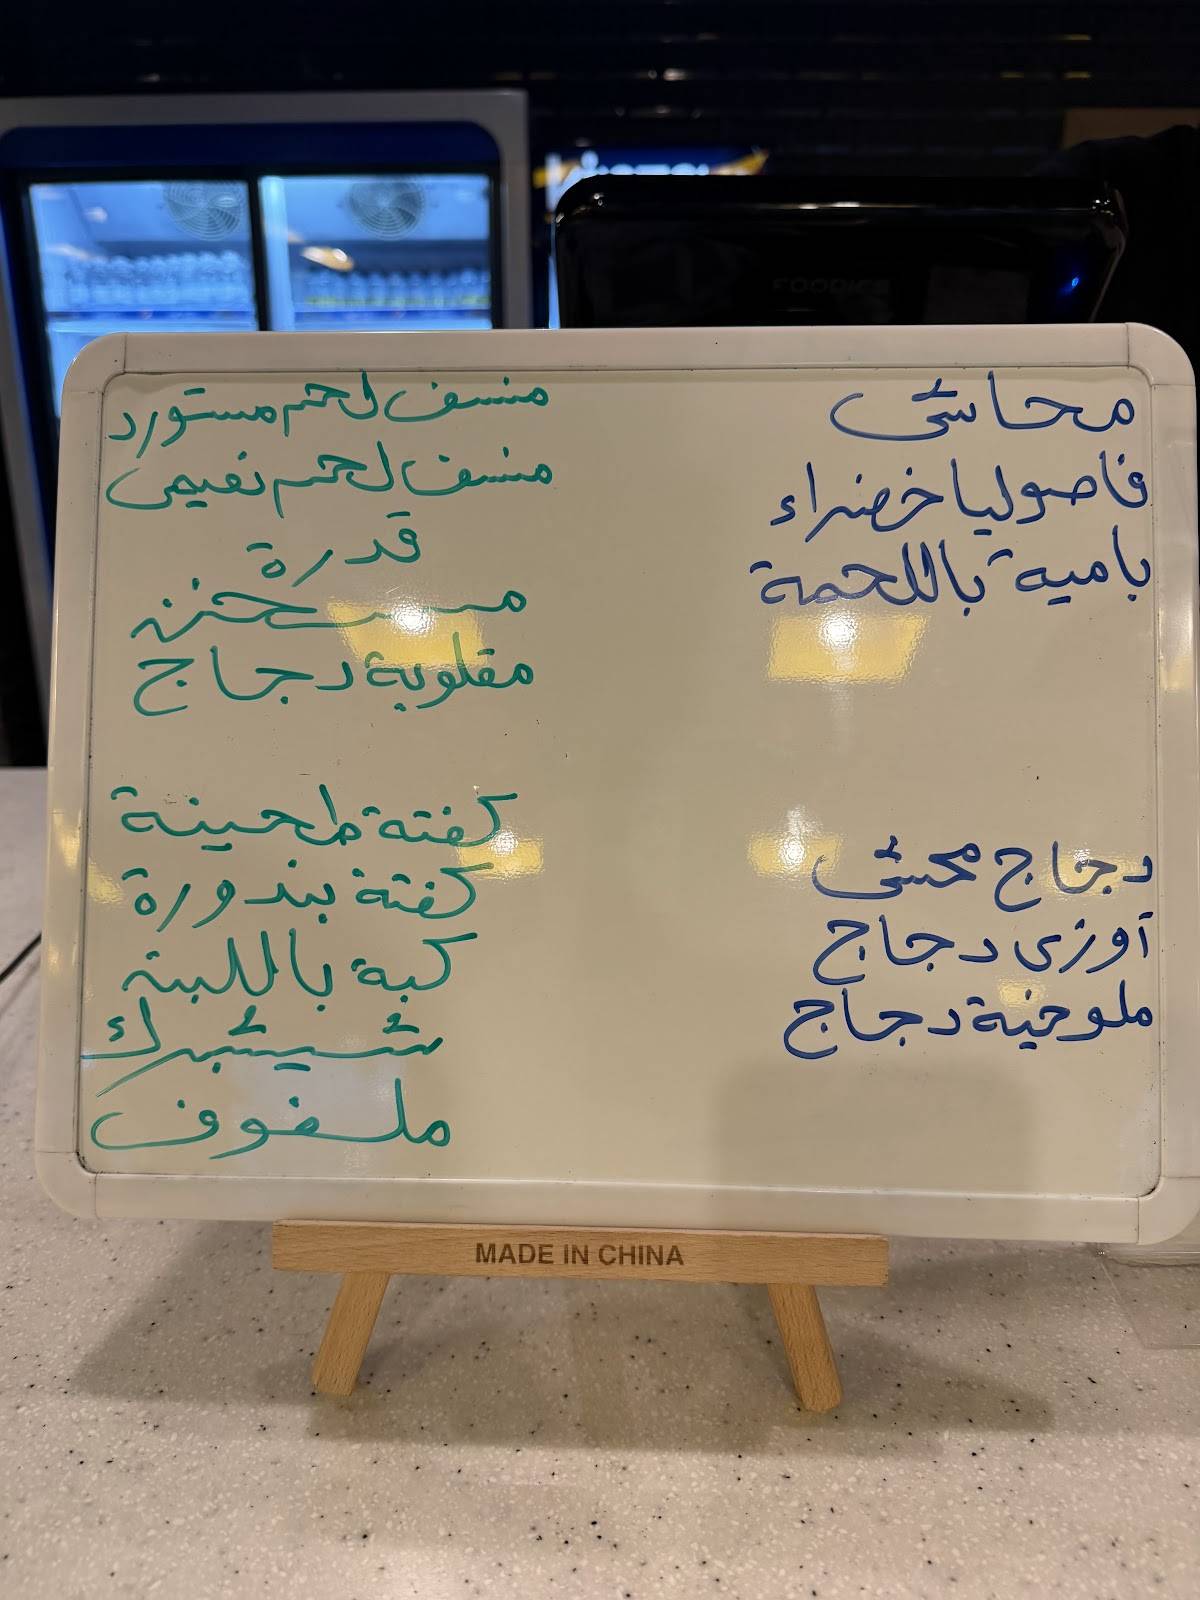 محاشي
فاصوليا خضراء
بامية باللحمة
دجاج محشي
أوزي دجاج
ملوخية دجاج
منسف لحم مستورد
منسف لحم نعيمي
قدرة
مسخن
مقلوبة دجاج
كفتة طحينة
كفتة بندورة
كبة باللبن
شيشبرك
ملفوف
MADE IN CHINA